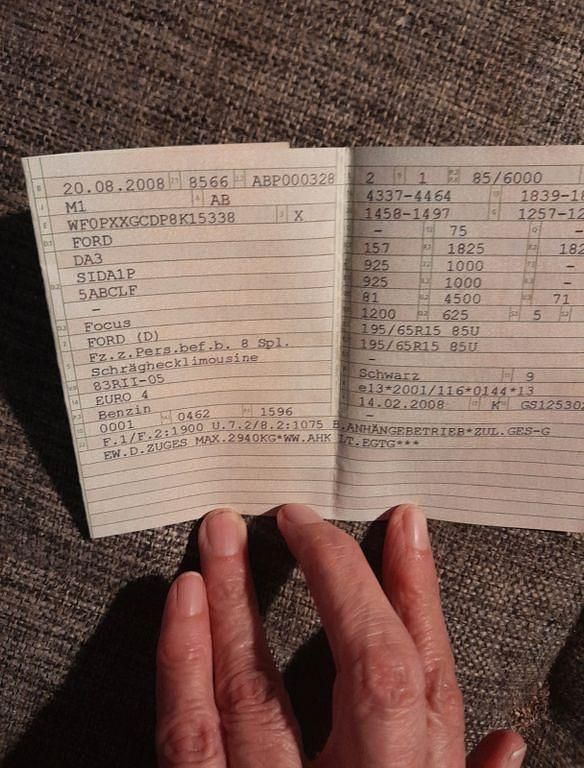 20.08.2008 8566 ABP000328
M1 AB
WF0PXXGCDP8K15338 X
FORD
DA3
SIDA1P
5ABCLF
-
Focus
FORD (D)
Fz.z.Pers.bef.b. 8 Spl.
Schräghecklimousine
83RII-05
EURO 4
Benzin
0001 0462 1596
F.1/F.2:1900 U.7.2/8.2:1075 B.ANHÄNGEBETRIEB*ZUL.GES-G
EW.D.ZUGES MAX.2940KG*WW.AHK LT.EGTG***
2 1 85/6000
4337-4464 1839-18
1458-1497 1257-12
- 75 -
157 1825 182
925 1000 -
925 1000 -
81 4500 71
1200 625 5
195/65R15 85U
195/65R15 85U
-
Schwarz 9
e13*2001/116*0144*13
14.02.2008 K GS12530
-